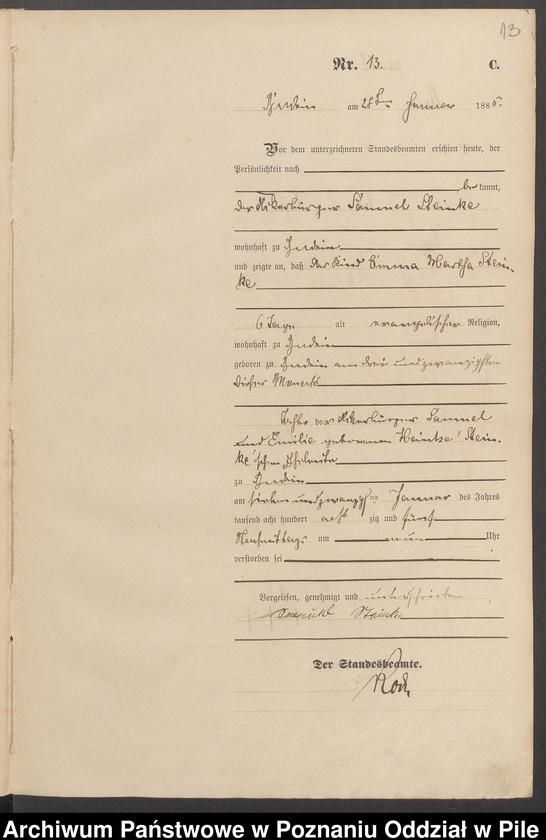 13
Nr. 13. C.
am 28ten Januar 1885.
Vor dem unterzeichneten Standesbeamten erschien heute, der
Persönlichkeit nach
bekannt,
der Ackerbürger Samuel Steinke
wohnhaft zu
und zeigte an, daß das Kind Emma Martha Stein-
ke
6 Tage alt evangelischer Religion,
wohnhaft zu
geboren zu am drei und zwanzigsten
dieses Monats
Tochter der Ackerbürger Samuel
und Emilie geborenen Heinke' Stein-
ke'schen Eheleute
zu
am sieben und zwanzigsten Januar des Jahres
tausend acht hundert achtzig und fünf
Nachmittags um neun Uhr
verstorben sei
Vorgelesen, genehmigt und unterschrieben
Samuel Steinke
Der Standesbeamte.
Archiwum Państwowe w Poznaniu Oddział w Pile